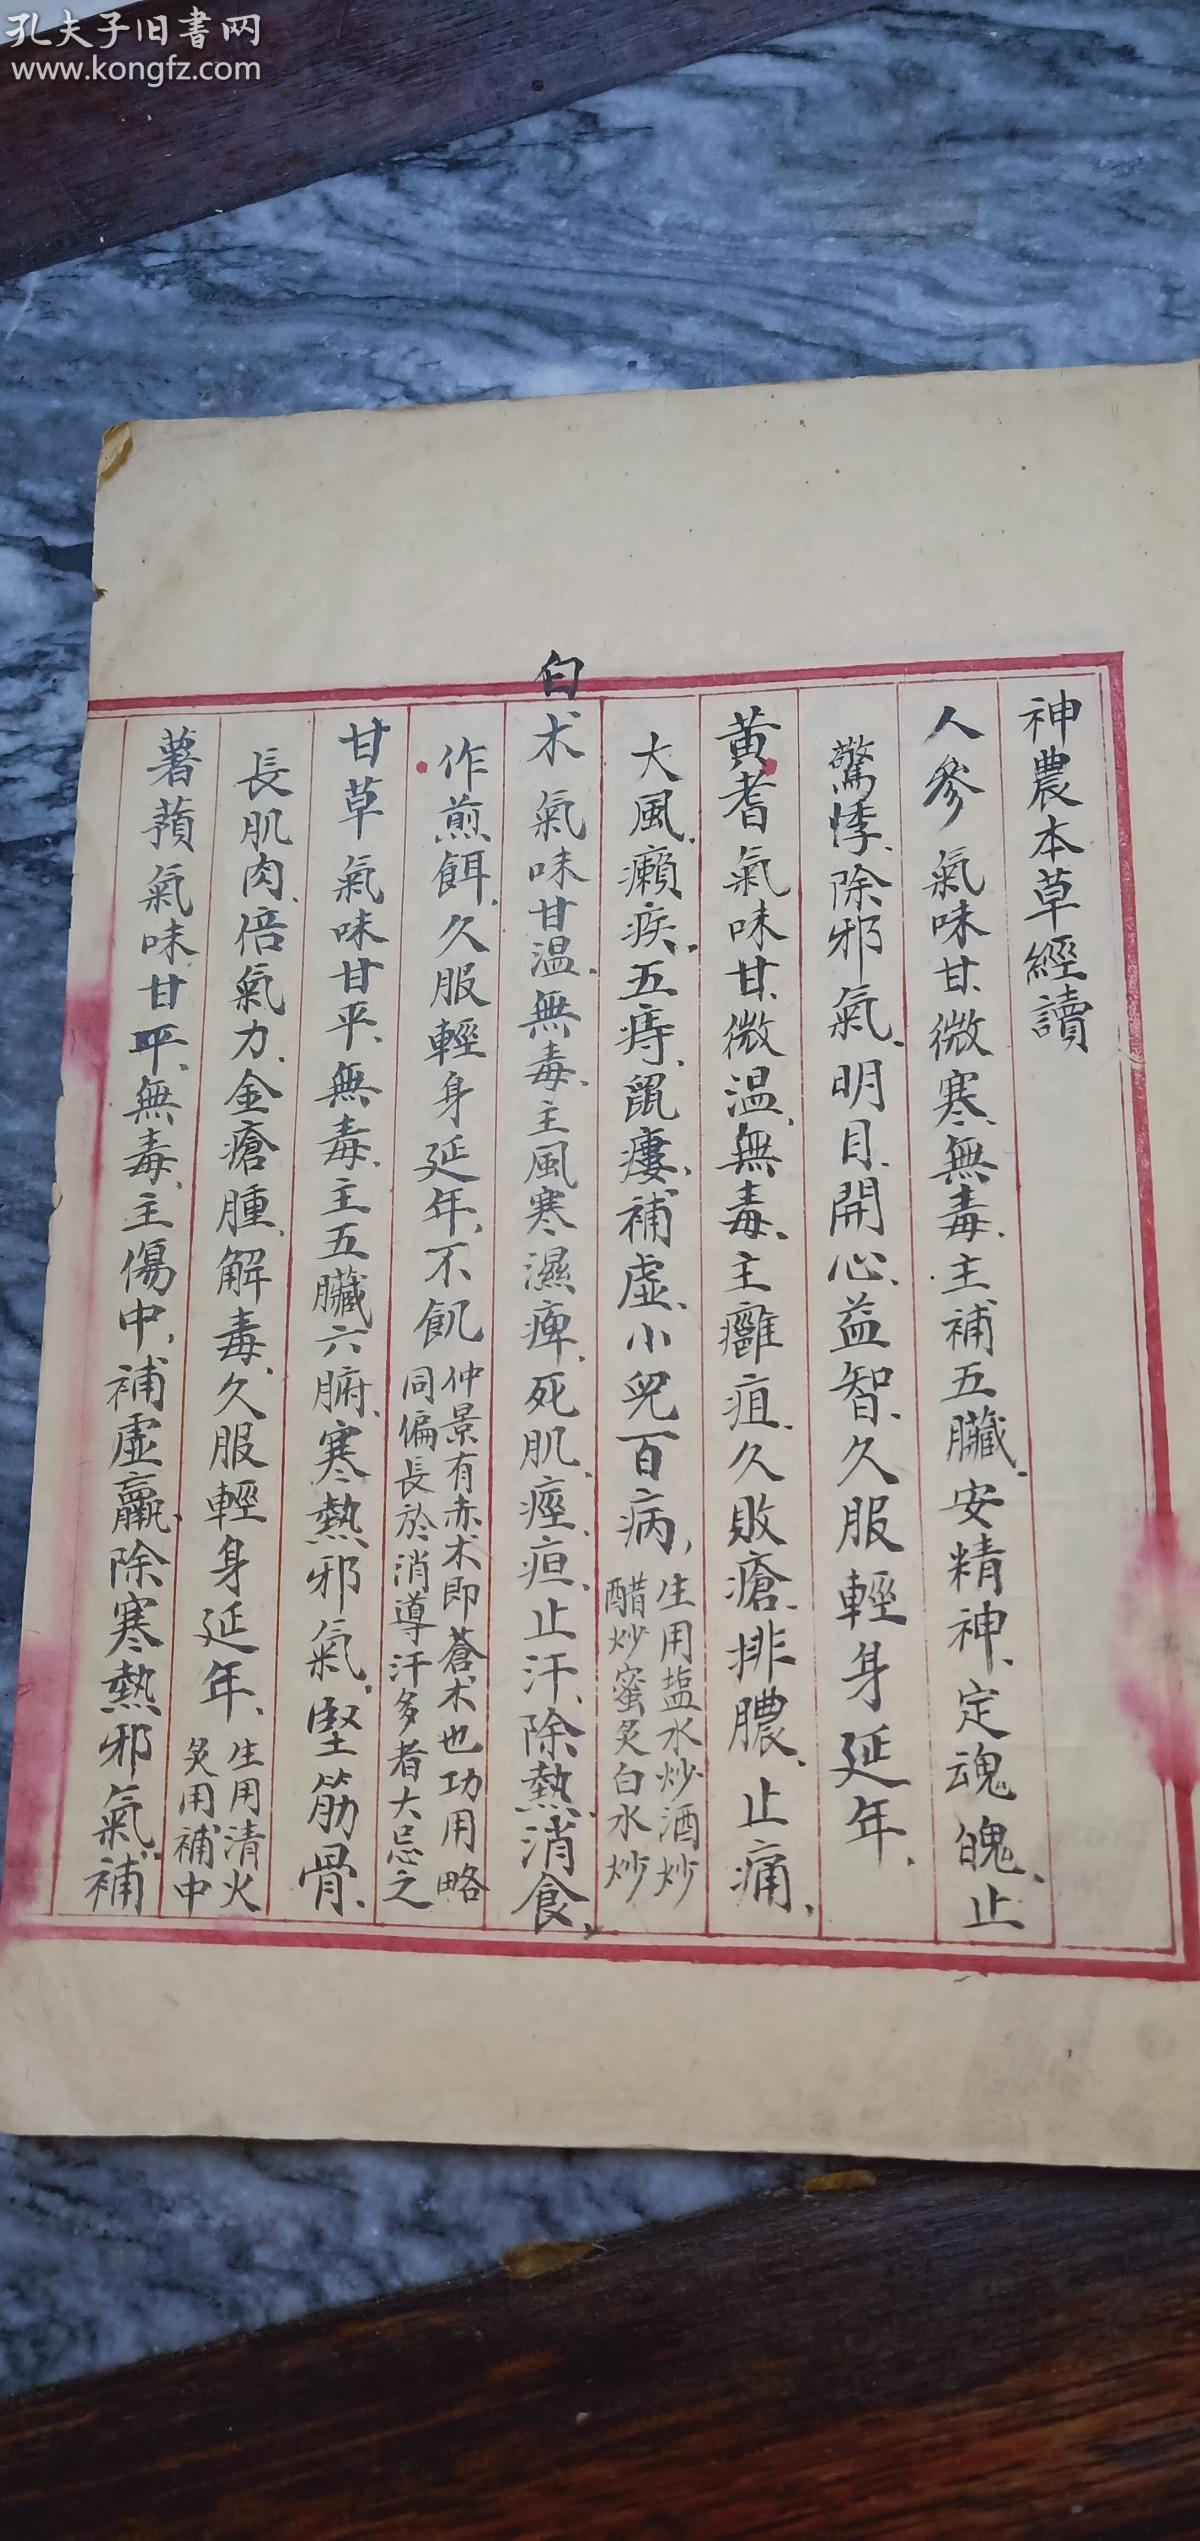 孔夫子旧書网
www.kongfz.com
神農本草經讀
人參 氣味甘、微寒、無毒、主補五臟、安精神、定魂魄、止
驚悸、除邪氣、明目、開心、益智、久服輕身延年、
黃耆 氣味甘、微溫、無毒、主癰疽、久敗瘡、排膿、止痛、
大風癩疾、五痔、鼠瘻、補虛、小兒百病、生用盐水炒酒炒
醋炒蜜炙白水炒
白朮 氣味甘溫、無毒、主風寒濕痺、死肌、痙疸、止汗、除熱、消食、
作煎餌、久服輕身延年、不飢 仲景有赤朮即蒼朮也功用略
同偏長於消導汗多者大忌之
甘草 氣味甘平、無毒、主五臟六腑、寒熱邪氣、堅筋骨、
長肌肉、倍氣力、金瘡腫、解毒、久服輕身延年、生用清火
炙用補中
薯蕷 氣味甘平、無毒、主傷中、補虛羸、除寒熱邪氣、補